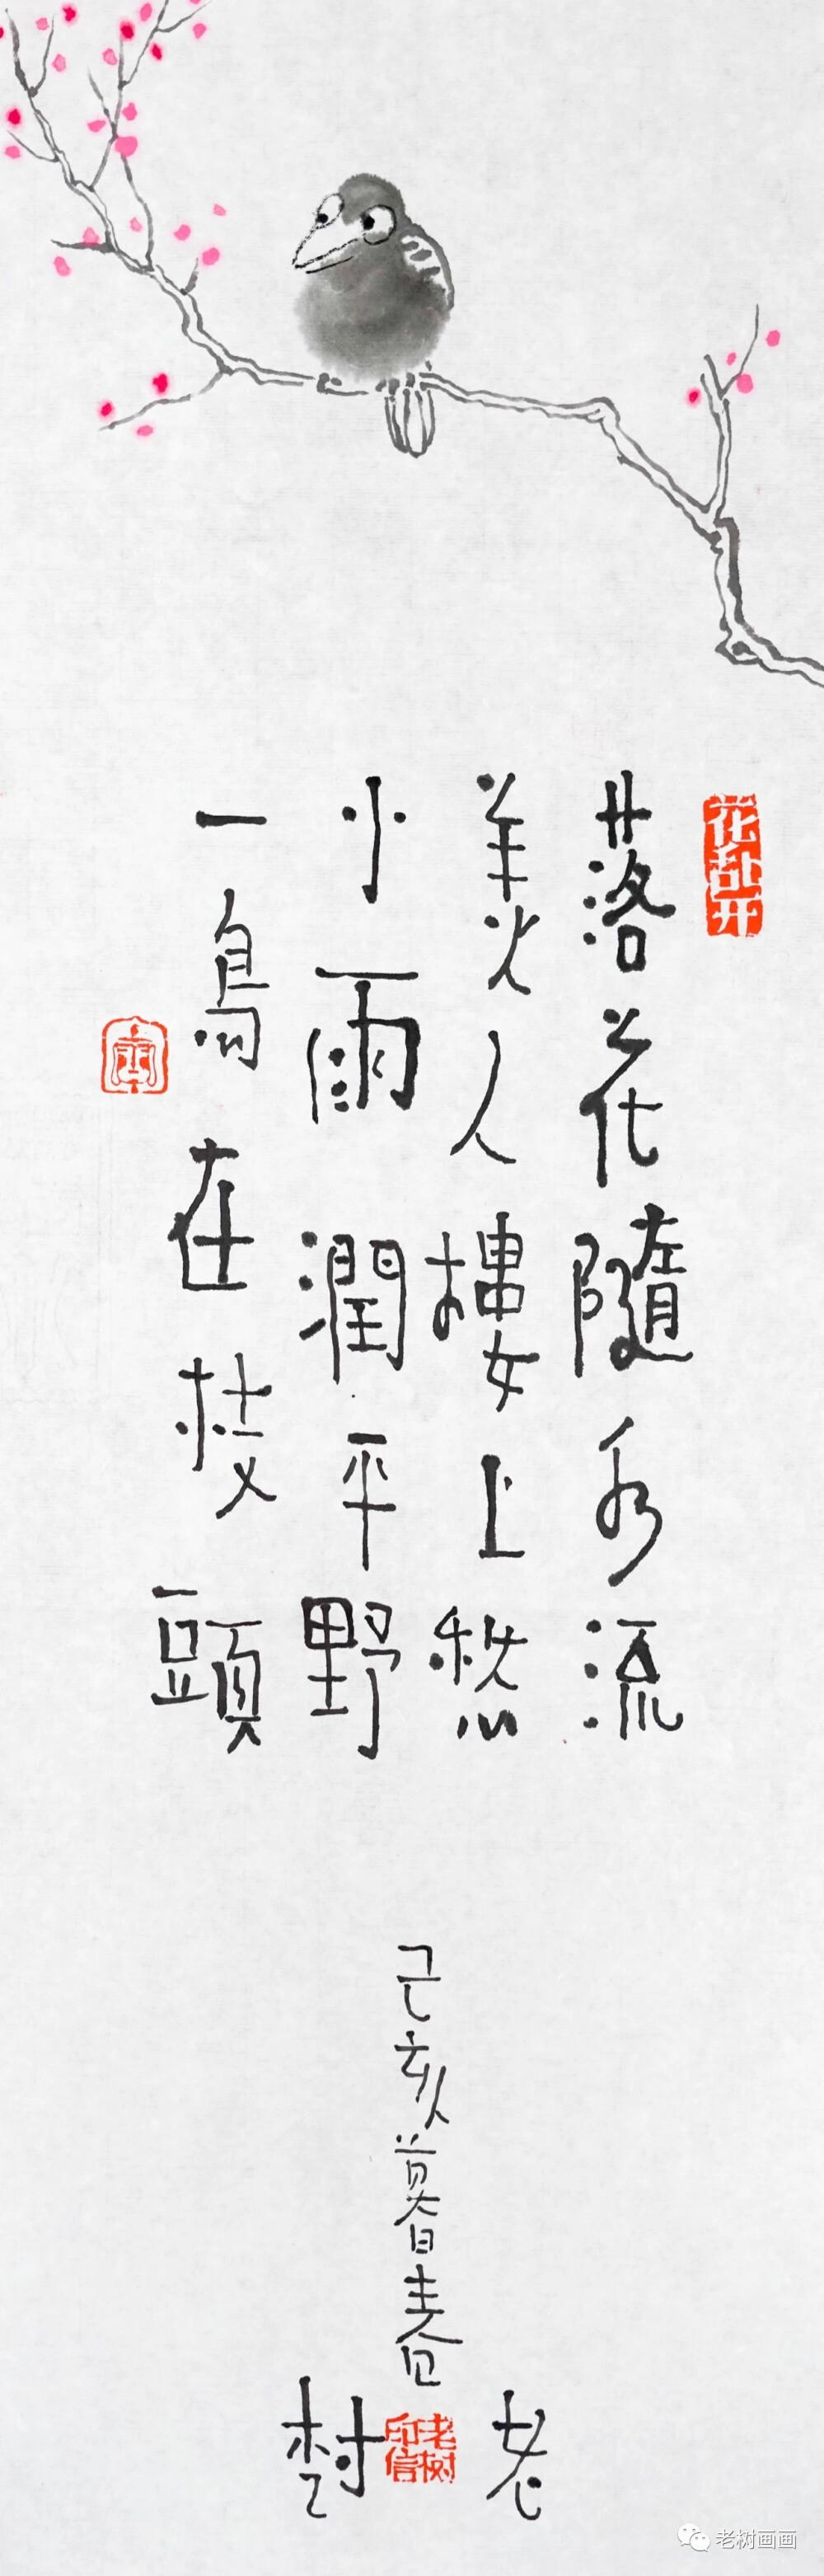 花乱开
落花隨水流
美人樓上愁
小雨潤平野
一鳥在枝頭
己亥暮春
老樹
老树印信
老树画画